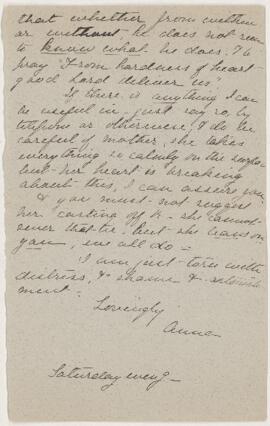 that whether from within
or without, he does not seem
to know what he does. I
pray "From hardness of heart
good Lord deliver us"
If there is anything I can
be useful in, just say so, by
telephone or otherwise, & do be
careful of mother, she takes
everything so calmly on the surface
but her heart is breaking
about this, I can assure you
& you must not suggest
her casting off — she cannot
sever that tie, but she leans on
you, we all do —
I am just torn with
distress, & shame & astonish
ment —
Lovingly
Anne
Saturday eveng —